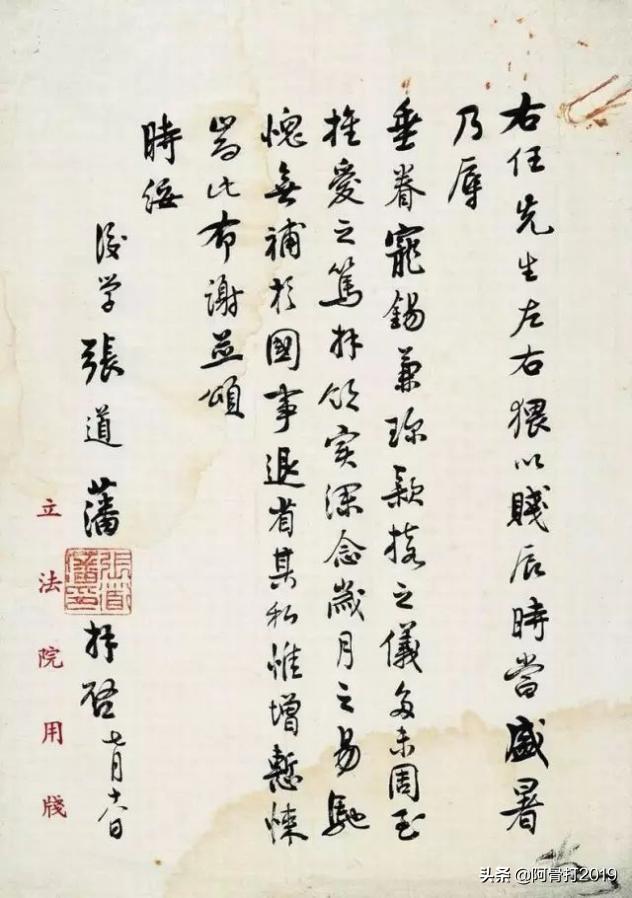 右任先生左右猥以賤辰時當盛暑
乃辱
垂眷寵錫兼珍款接之儀多未周至
推愛之篤拜領實深念歲月之易馳
愧無補於國事退省其私惟增慙悚
耑此布謝並頌
時綏
後学張道藩拜啓七月十六日
張道藩印
立法院用牋
头条 @阿骨打2019